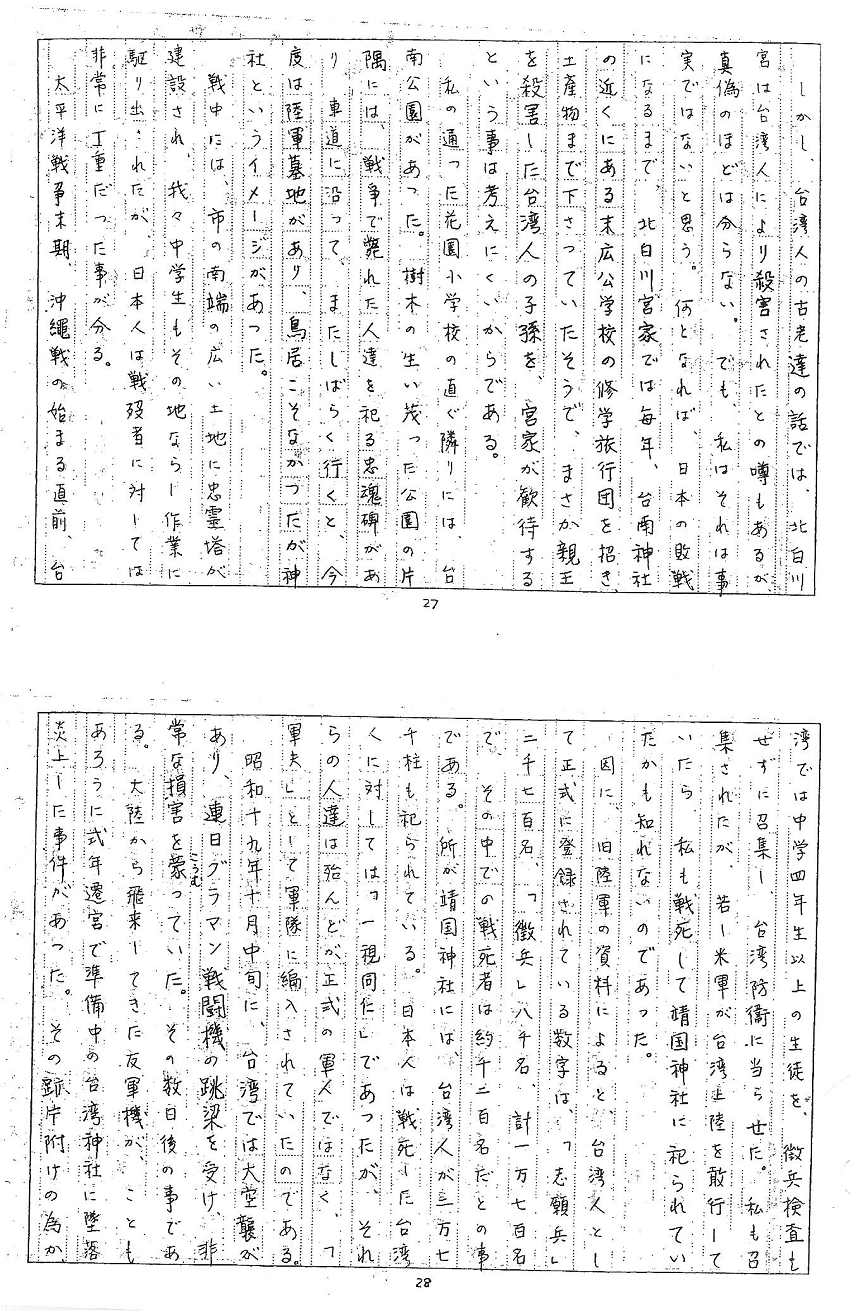 しかし、台湾人の古老達の話では、北白川
宮は台湾人により殺害されたとの噂もあるが、
真偽のほどは分らない。でも、私はそれは事
実ではないと思う。何となれば、日本の敗戦
になるまで、北白川宮家では毎年、台南神社
の近くにある末広公学校の修学旅行団を招き、
土産物まで下さっていたそうで、まさか親王
を殺害した台湾人の子孫を、宮家が歓待する
という事は考えにくいからである。
私の通った花園小学校の直ぐ隣りには、台
南公園があった。樹木の生い茂った公園の片
隅には、戦争で斃れた人達を祀る忠魂碑があ
り、車道に沿って、またしばらく行くと、今
度は陸軍墓地があり、鳥居こそなかったが神
社というイメージがあった。
戦中には、市の南端の広い土地に忠霊塔が
建設され、我々中学生もその地ならし作業に
駆り出されたが、日本人は戦歿者に対しては
非常に丁重だった事が分る。
太平洋戦争末期、沖縄戦の始まる直前、台
27
湾では中学四年生以上の生徒を、徴兵検査も
せずに召集し、台湾防衛に当らせた。私も召
集されたが、若し米軍が台湾上陸を敢行して
いたら、私も戦死して靖国神社に祀られてい
たかも知れないのであった。
因に、旧陸軍の資料によると、台湾人とし
て正式に登録されている数字は、「志願兵」
二千七百名、「徴兵」八千名、計一万七百名
で、その中での戦死者は約千二百名だとの事
である。所が靖国神社には、台湾人が三万七
千柱も祀られている。日本人は戦死した台湾
くに対しては「一視同仁」であったが、それ
らの人達は殆んどが正式の軍人ではなく、「
軍夫」として軍隊に編入されていたのである。
昭和十九年十月中旬に、台湾では大空襲が
あり、連日グラマン戦闘機の跳梁を受け、非
常な損害を蒙っていた。その数日後の事であ
こうむ
る。大陸から飛来してきた友軍機が、ことも
あろうに式年遷宮で準備中の台湾神社に墜落
炎上した事件があった。その跡片付けの為か、
28